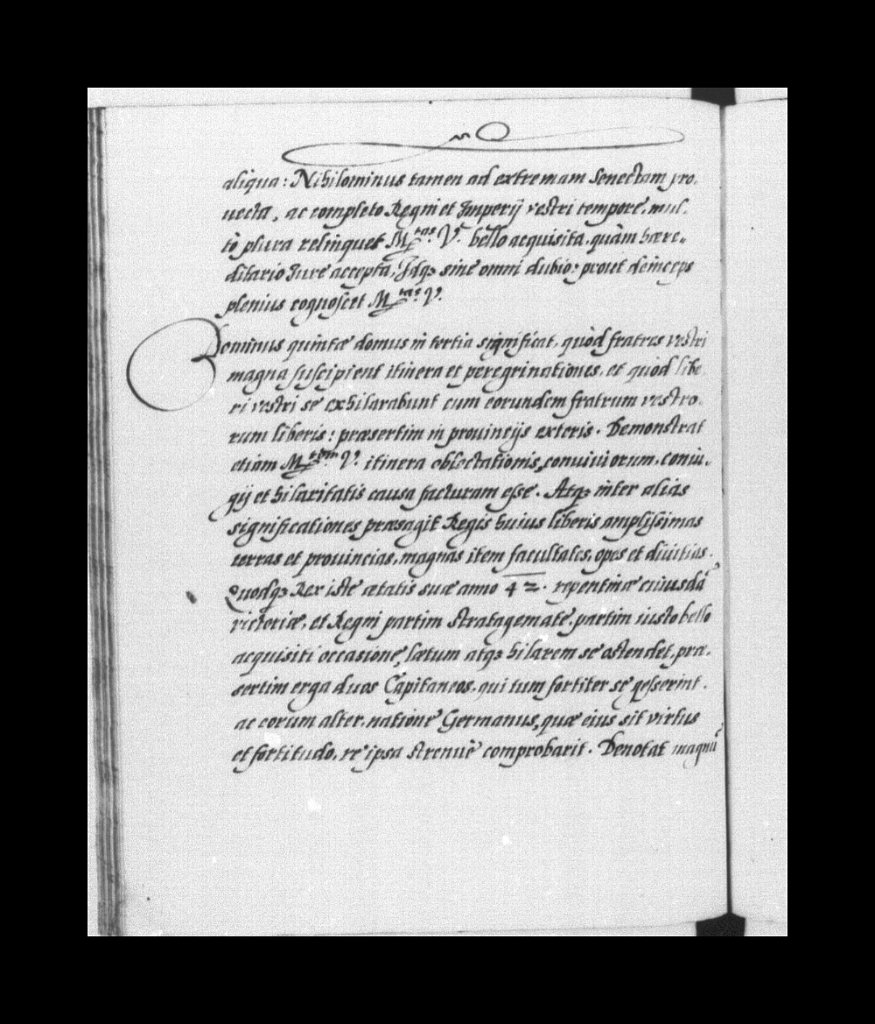 aliqua: Nihilominus tamen ad extremam Senectam pro-
uecta, ac completo Regni et Imperij vestri tempore, mul-
tò plura relinquet M.tas V. bello acquisita, quàm hære-
ditario Iure accepta, Idq3 sine omni dubio: prout deinceps
plenius cognoscet M.tas V.
Dominus quintæ domus in tertia significat, quòd fratres vestri
magna suscipient itinera et peregrinationes, et quòd libe-
ri vestri se exhilarabunt cum eorundem fratrum vestro-
rum liberis: præsertim in prouintijs exteris. Demonstrat
etiam M.tem V. itinera oblectationis, conuiuiorum, coniu-
gij et hilaritatis causa facturam esse. Atq3 inter alias
significationes præsagit Regis huius liberis amplissimas
terras et prouincias, magnas item facultates, opes et diuitias.
Quodq3 Rex iste ætatis suæ anno 42. repentinæ cuiusdā
victoriæ, et Regni partim stratagemate, partim iusto bello
acquisiti occasione, lætum atq3 hilarem se ostendet, præ-
sertim erga duos Capitaneos, qui tum fortiter se gesserint.
ac eorum alter, natione Germanus, quæ eius sit virtus
et fortitudo, re ipsa strenuè comprobarit. Denotat magnū